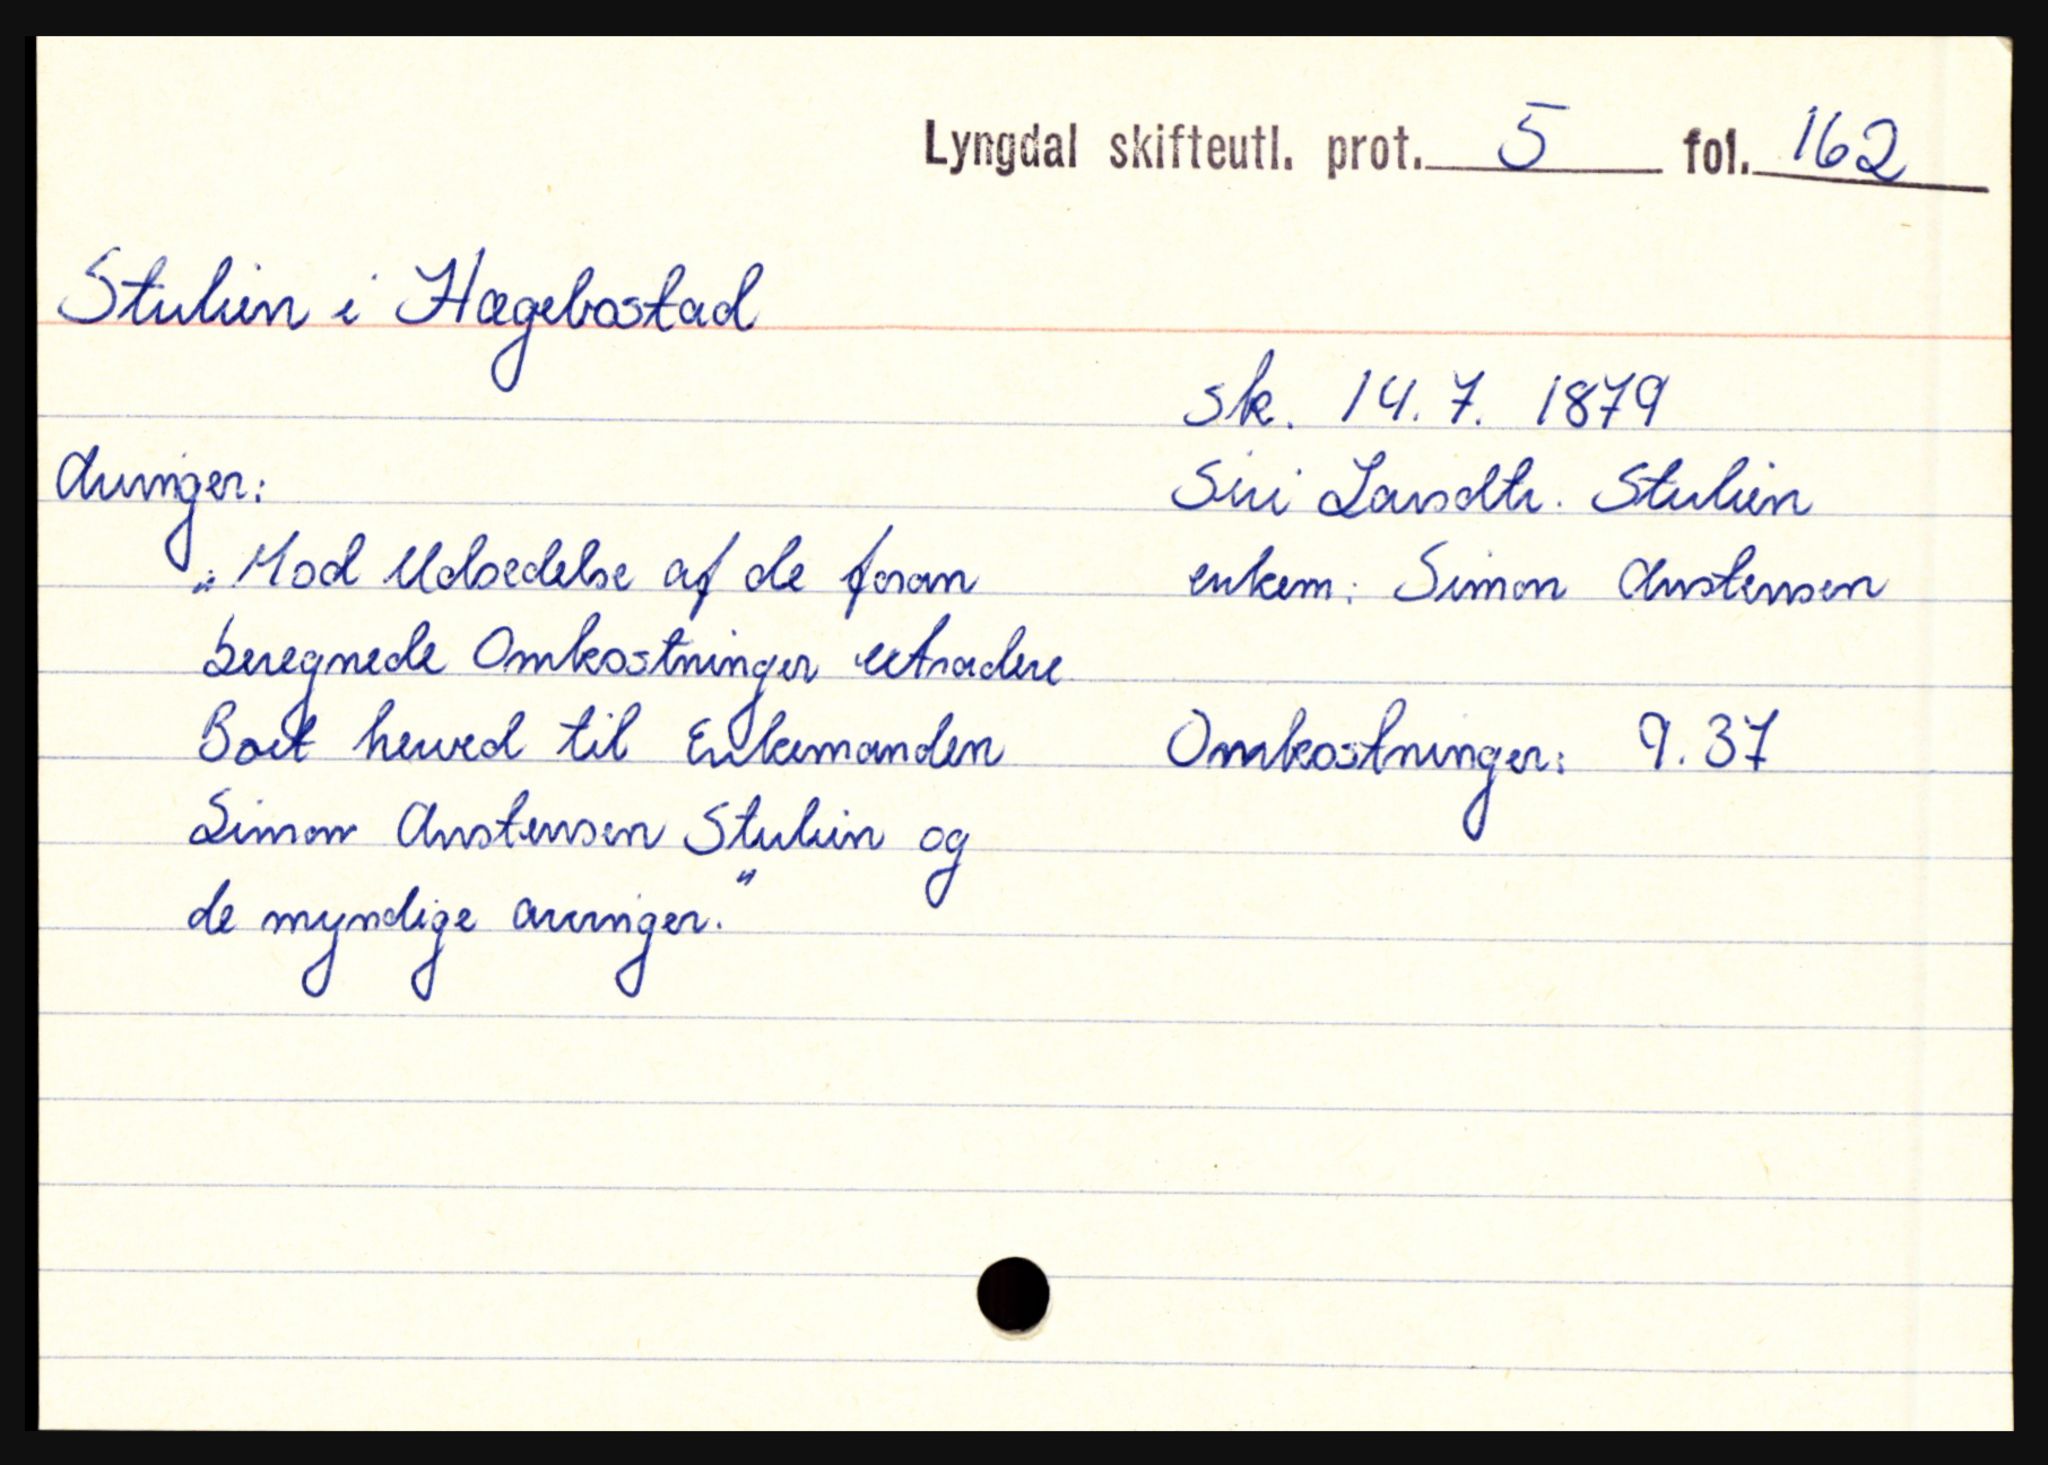 Lyngdal skifteutl. prot. 5 fol. 162
Stulien i Hægebostad
sk. 14. 7. 1879
Siri Larsdtr. Stulien
enkem: Simon Anstensen
Omkostninger: 9.37
Arvinger:
"Mod Udredelse af de foran
beregnede Omkostninger extradere
Boet herved til Enkemanden
Simon Anstensen Stulien og
de myndige arvinger."